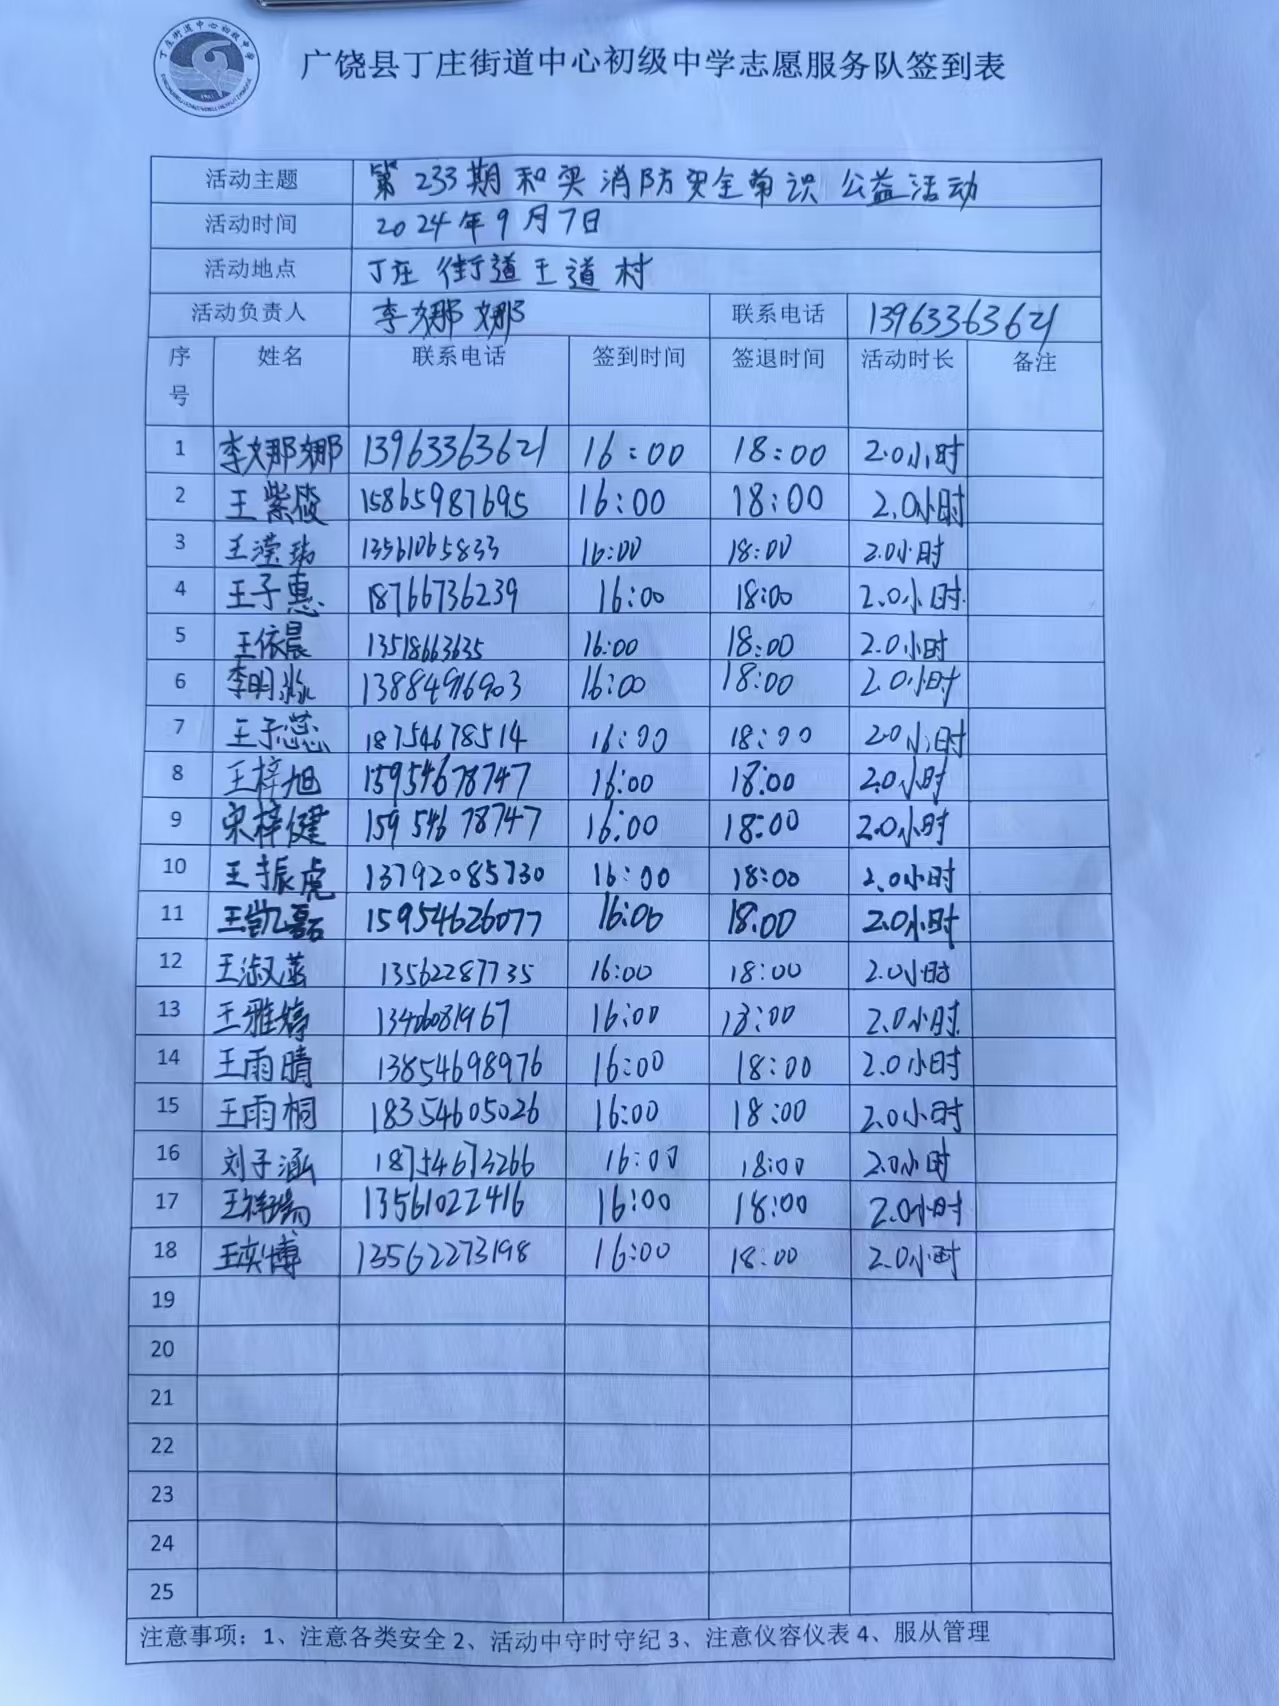 丁庄街道中心初级中学
广饶县丁庄街道中心初级中学志愿服务队签到表
活动主题 第233期和美消防安全常识公益活动
活动时间 2024年9月7日
活动地点 丁庄街道王道村
活动负责人 李娜娜 联系电话 13963363621
序号 姓名 联系电话 签到时间 签退时间 活动时长 备注
1 李娜娜 13963363621 16:00 18:00 2.0小时
2 王紫筱 15865987695 16:00 18:00 2.0小时
3 王滢瑞 13561065833 16:00 18:00 2.0小时
4 王子惠 18766736239 16:00 18:00 2.0小时
5 王依晨 13518663635 16:00 18:00 2.0小时
6 李明淼 13884916903 16:00 18:00 2.0小时
7 王子蕊 18754678514 16:00 18:00 2.0小时
8 王梓旭 15954678747 16:00 18:00 2.0小时
9 宋梓健 15954678747 16:00 18:00 2.0小时
10 王振虎 13792085730 16:00 18:00 2.0小时
11 王凯磊 15954626077 16:00 18:00 2.0小时
12 王淑菡 13562287735 16:00 18:00 2.0小时
13 王雅婷 13406081967 16:00 18:00 2.0小时
14 王雨晴 13854698976 16:00 18:00 2.0小时
15 王雨桐 18354605026 16:00 18:00 2.0小时
16 刘子涵 18754673266 16:00 18:00 2.0小时
17 王祥瑞 13561022416 16:00 18:00 2.0小时
18 王奕博 13562273198 16:00 18:00 2.0小时
19
20
21
22
23
24
25
注意事项：1、注意各类安全 2、活动中守时守纪 3、注意仪容仪表 4、服从管理